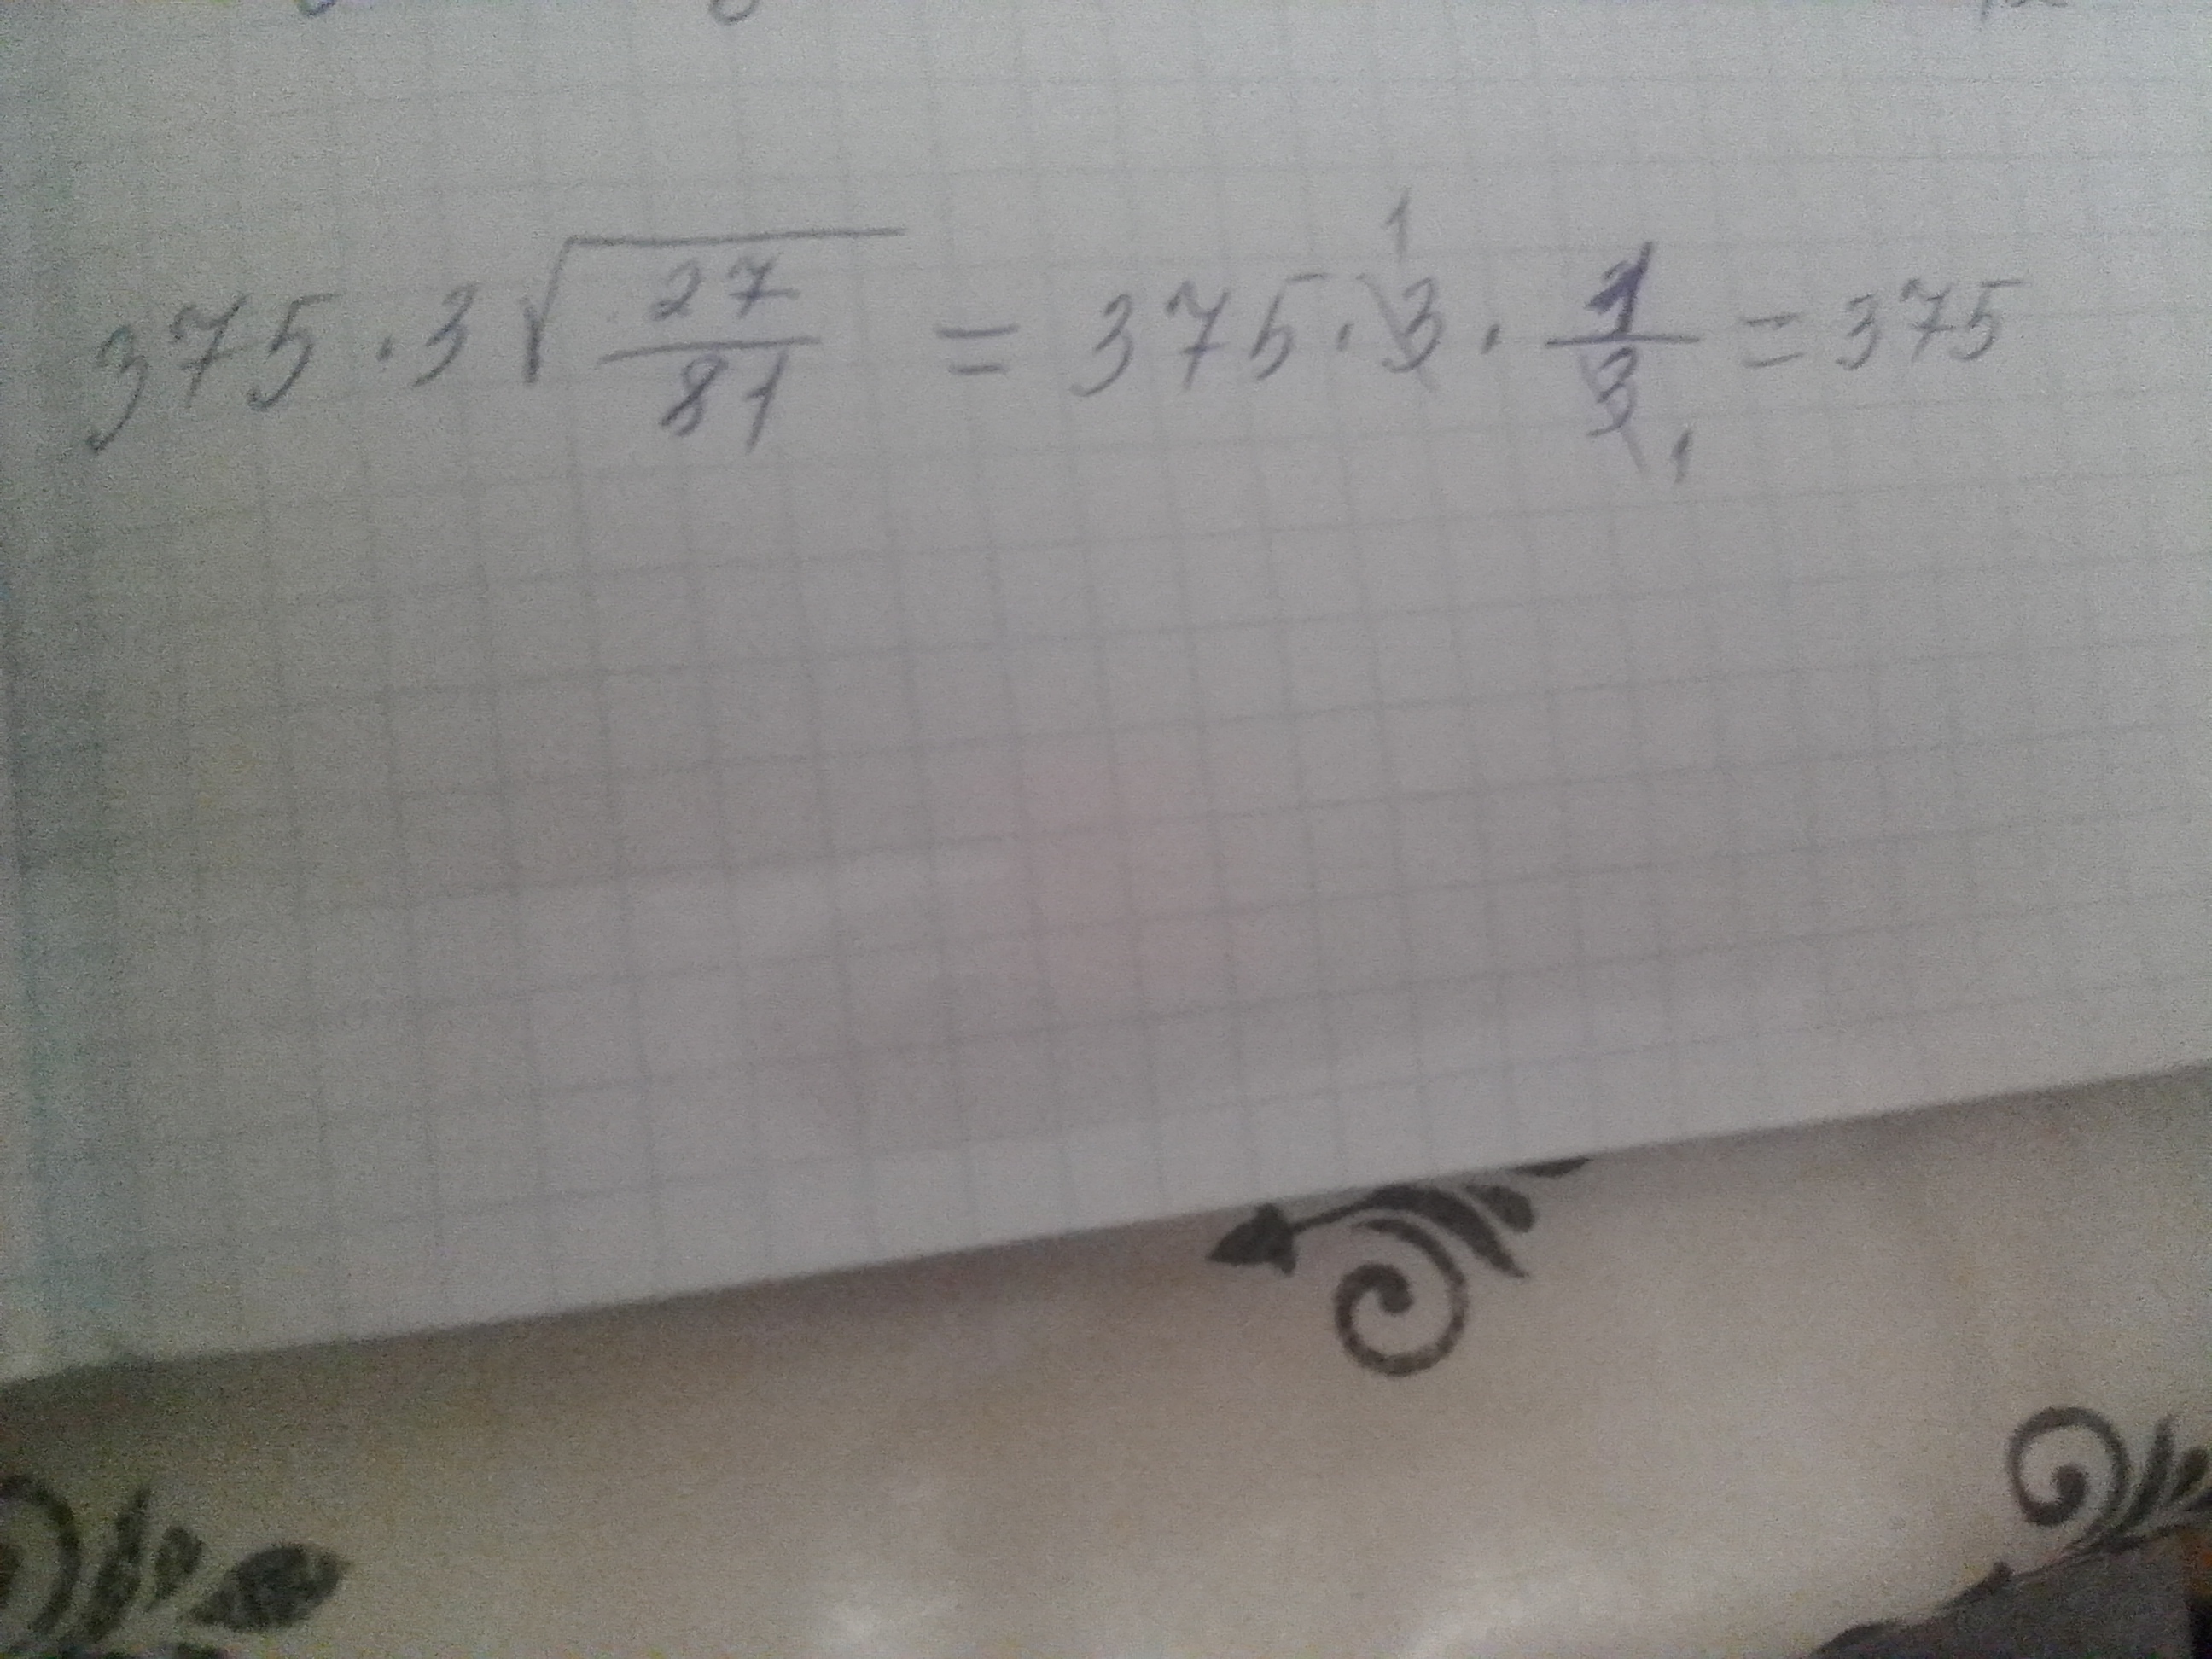 375 · 3 √(27/81) = 375 · 3 1 · 1/3 1 = 375